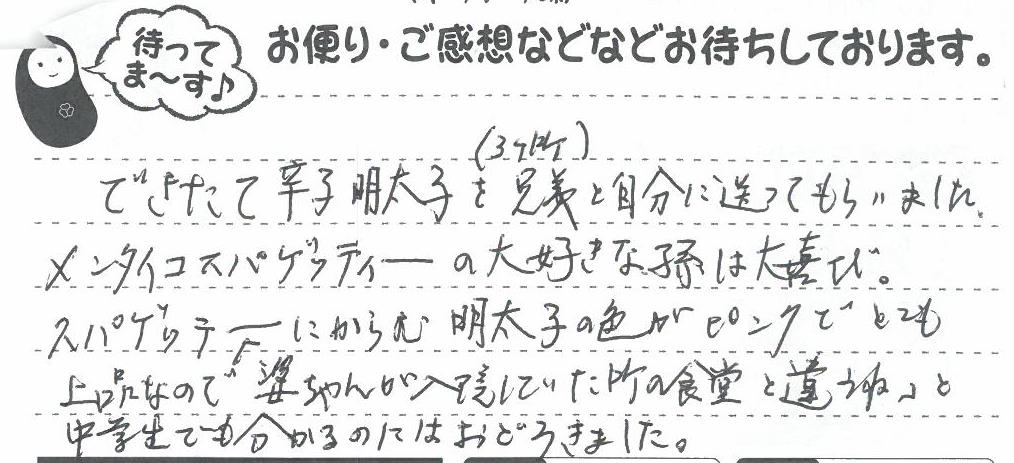 待って
ま〜す♪
お便り・ご感想などなどお待ちしております。
(3ケ所)
できたて辛子明太子を兄義と自分に送ってもらいました。
メンタイコスパゲッティーの大好きな孫は大喜び。
スパゲッティーにからむ明太子の色がピンクでとても
上品なので「婆ちゃんが入院していた所の食堂と違うね」と
中学生でも分かるのにはおどろきました。